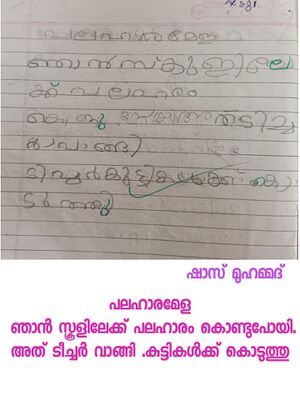 പലഹാരമേള
ഞാൻ സ്കൂളിലേ
ക്ക് പലഹാരം
ടിച്ചർ കുട്ടികൾക്ക് കൊ
ടുത്തു
ഷാസ് മുഹമ്മദ്
പലഹാരമേള
ഞാൻ സ്കൂളിലേക്ക് പലഹാരം കൊണ്ടുപോയി.
അത് ടീച്ചർ വാങ്ങി .കുട്ടികൾക്ക് കൊടുത്തു